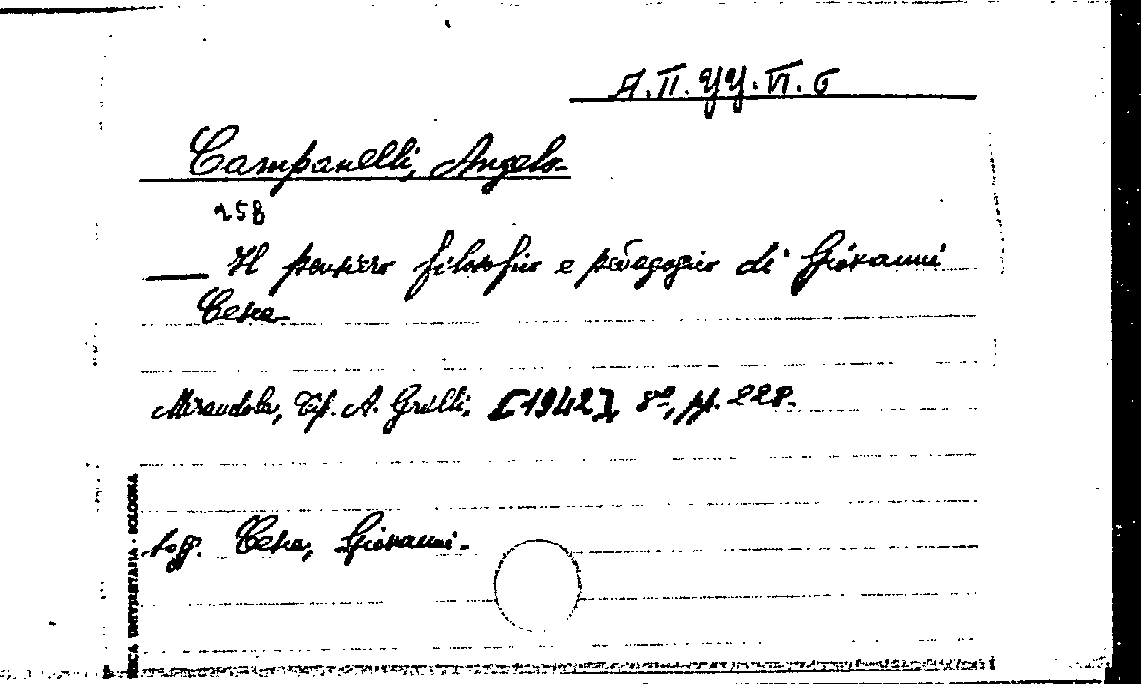 A.II.YY.VI.6
Campanelli, Angelo
258
Il pensiero filosofico e pedagogico di Giovanni
Cesca
Mirandola, Tip. A. Grilli, [1942], 8º, pp. 228.
sogg. Cesca, Giovanni.
UNIVERSITARIA - BOLOGNA